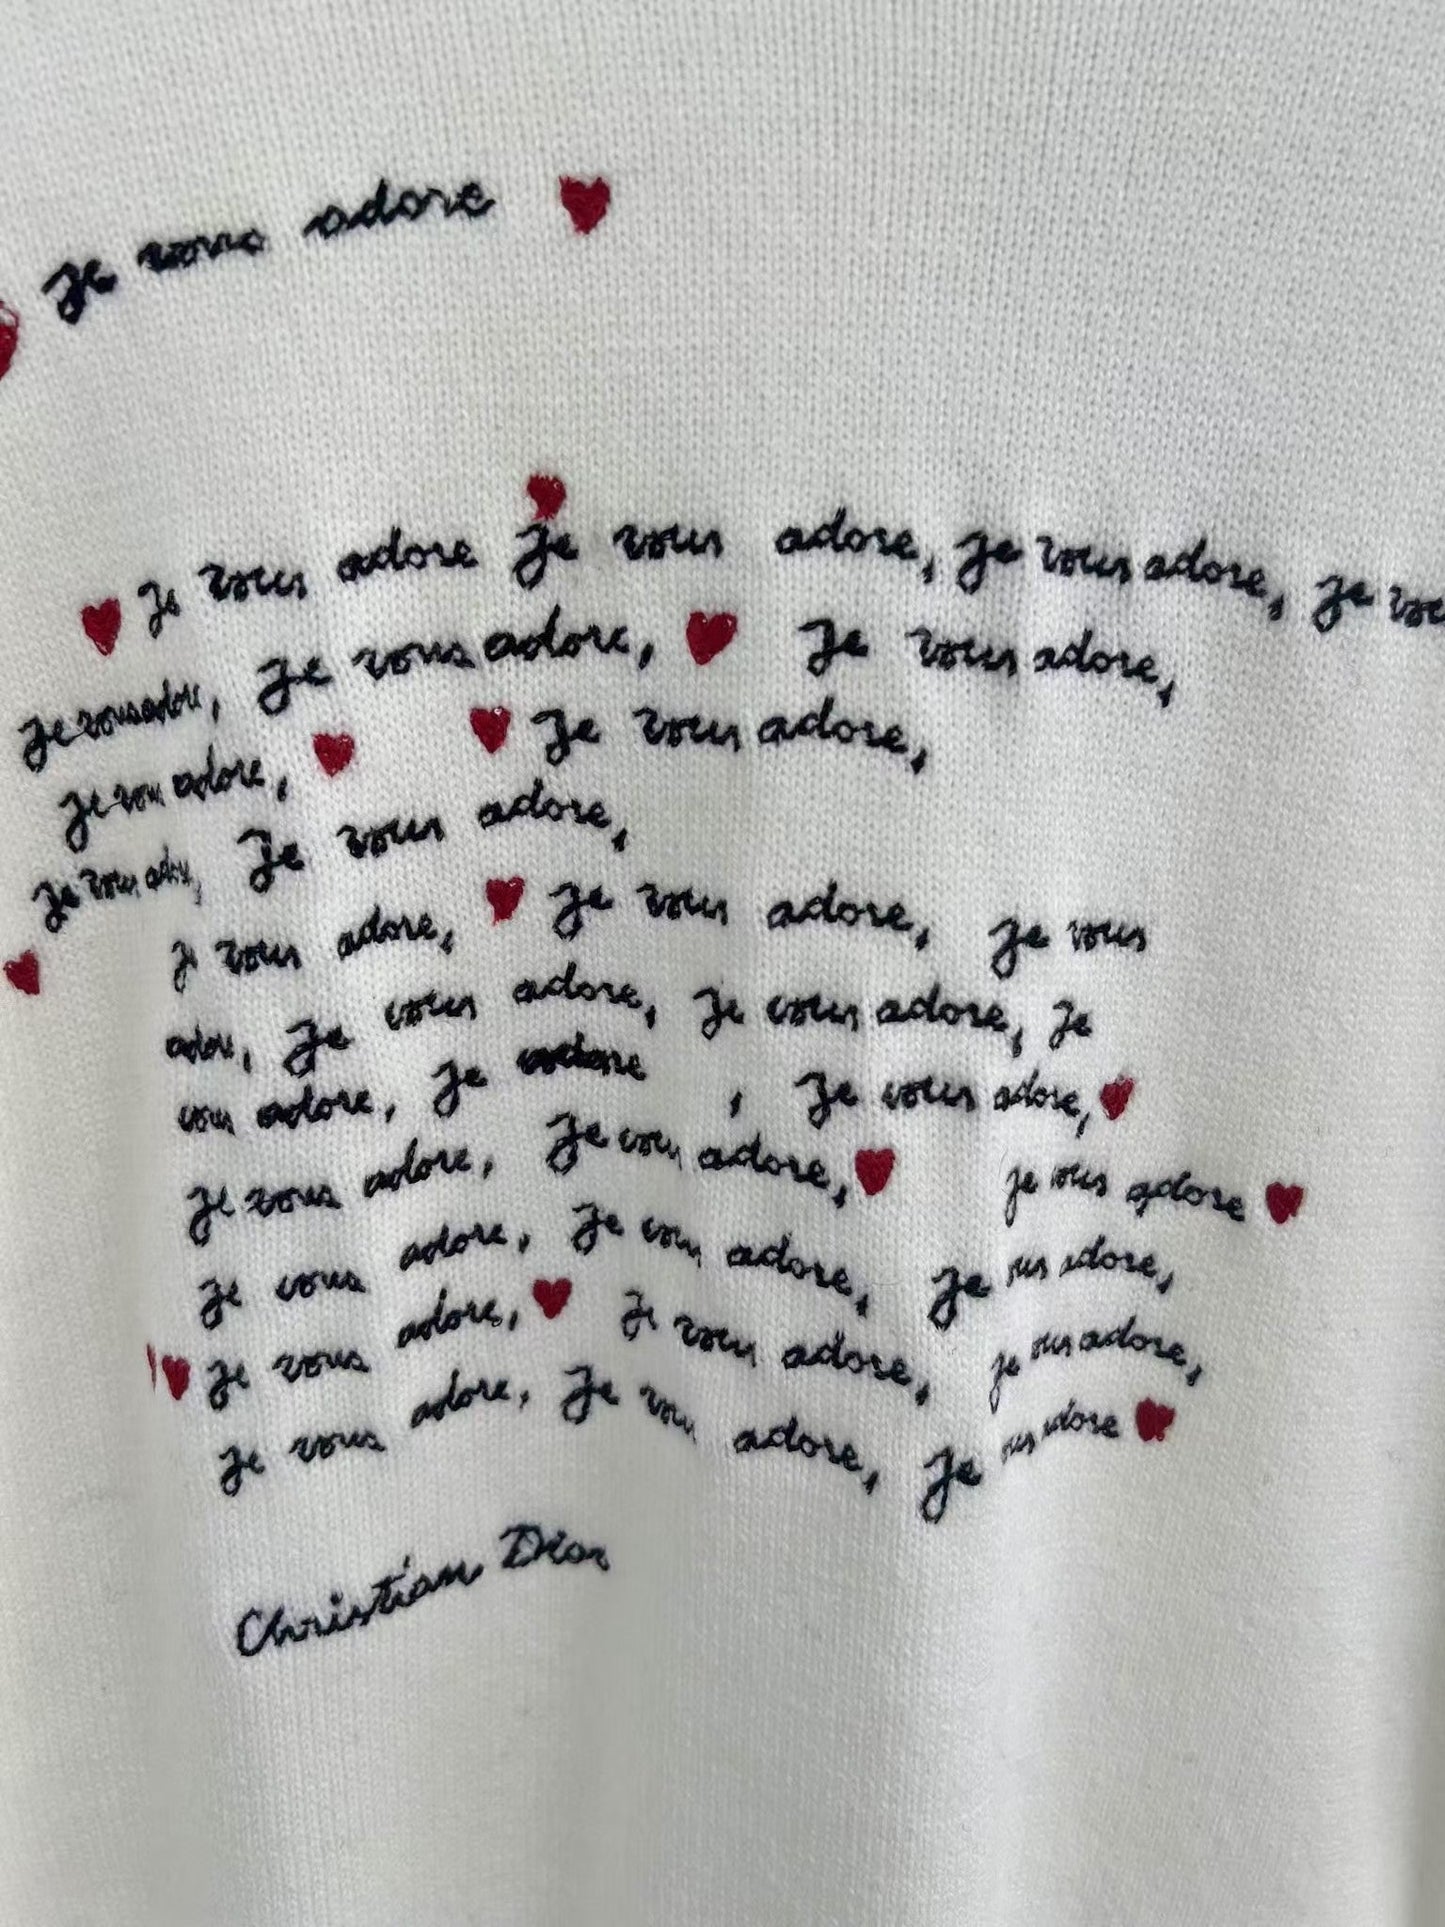 Je vous adore
Je vous adore Je vous adore, Je vous adore, Je vou
Je vous adore, Je vous adore, Je vous adore,
Je vou adore, Je vous adore,
Je vous ador, Je vous adore,
Je vous adore, Je vous adore, Je vous
adore, Je vous adore, Je vous adore, Je
vous adore, Je , Je vous adore,
Je vous adore, Je vou adore, Je vous adore
Je vous adore, Je vou adore, Je us adore,
Je vous adore, Je vous adore, Je us adore,
Je vous adore, Je vou adore, Je us adore
Christian Dior